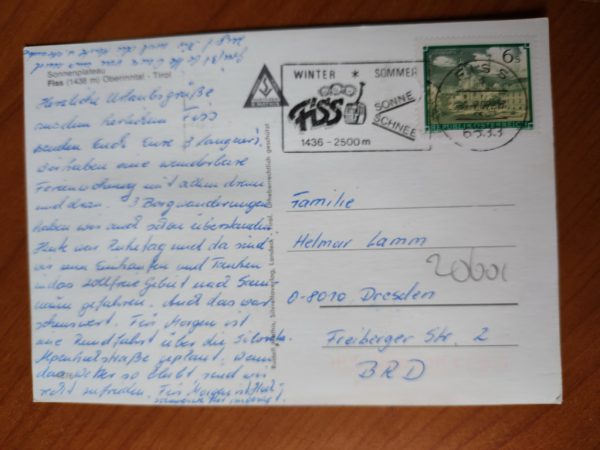 Sonnenplateau
Fiss (1436 m) Oberinntal - Tirol
Herzliche Urlaubsgrüße
aus dem herlichen Fiss
senden Euch Eure 3 langner's.
Wir haben eine wunderbare
Ferienwohnung mit allem drum
und dran. 3 Bergwanderungen
haben wir auch schon überstanden.
Heute war Ruhetag und da sind
wir zum Einkaufen und Tanken
in das zollfreie Gebiet nach Sam
naun gefahren. Auch das war
sehenswert. Für Morgen ist
eine Rundfahrt über die Silvretta
Alpenhochstraße geplant, wenn
das Wetter so bleibt sind wir
recht zufrieden. Für Morgen ist
WINTER * SOMMER
FISS
SONNE
SCHNEE
1436 - 2500 m
FISS
6533
6 S
REPUBLIK ÖSTERREICH
Familie
Helmar Lamm
O-8010 Dresden
Freiberger Str. 2
BRD
20601